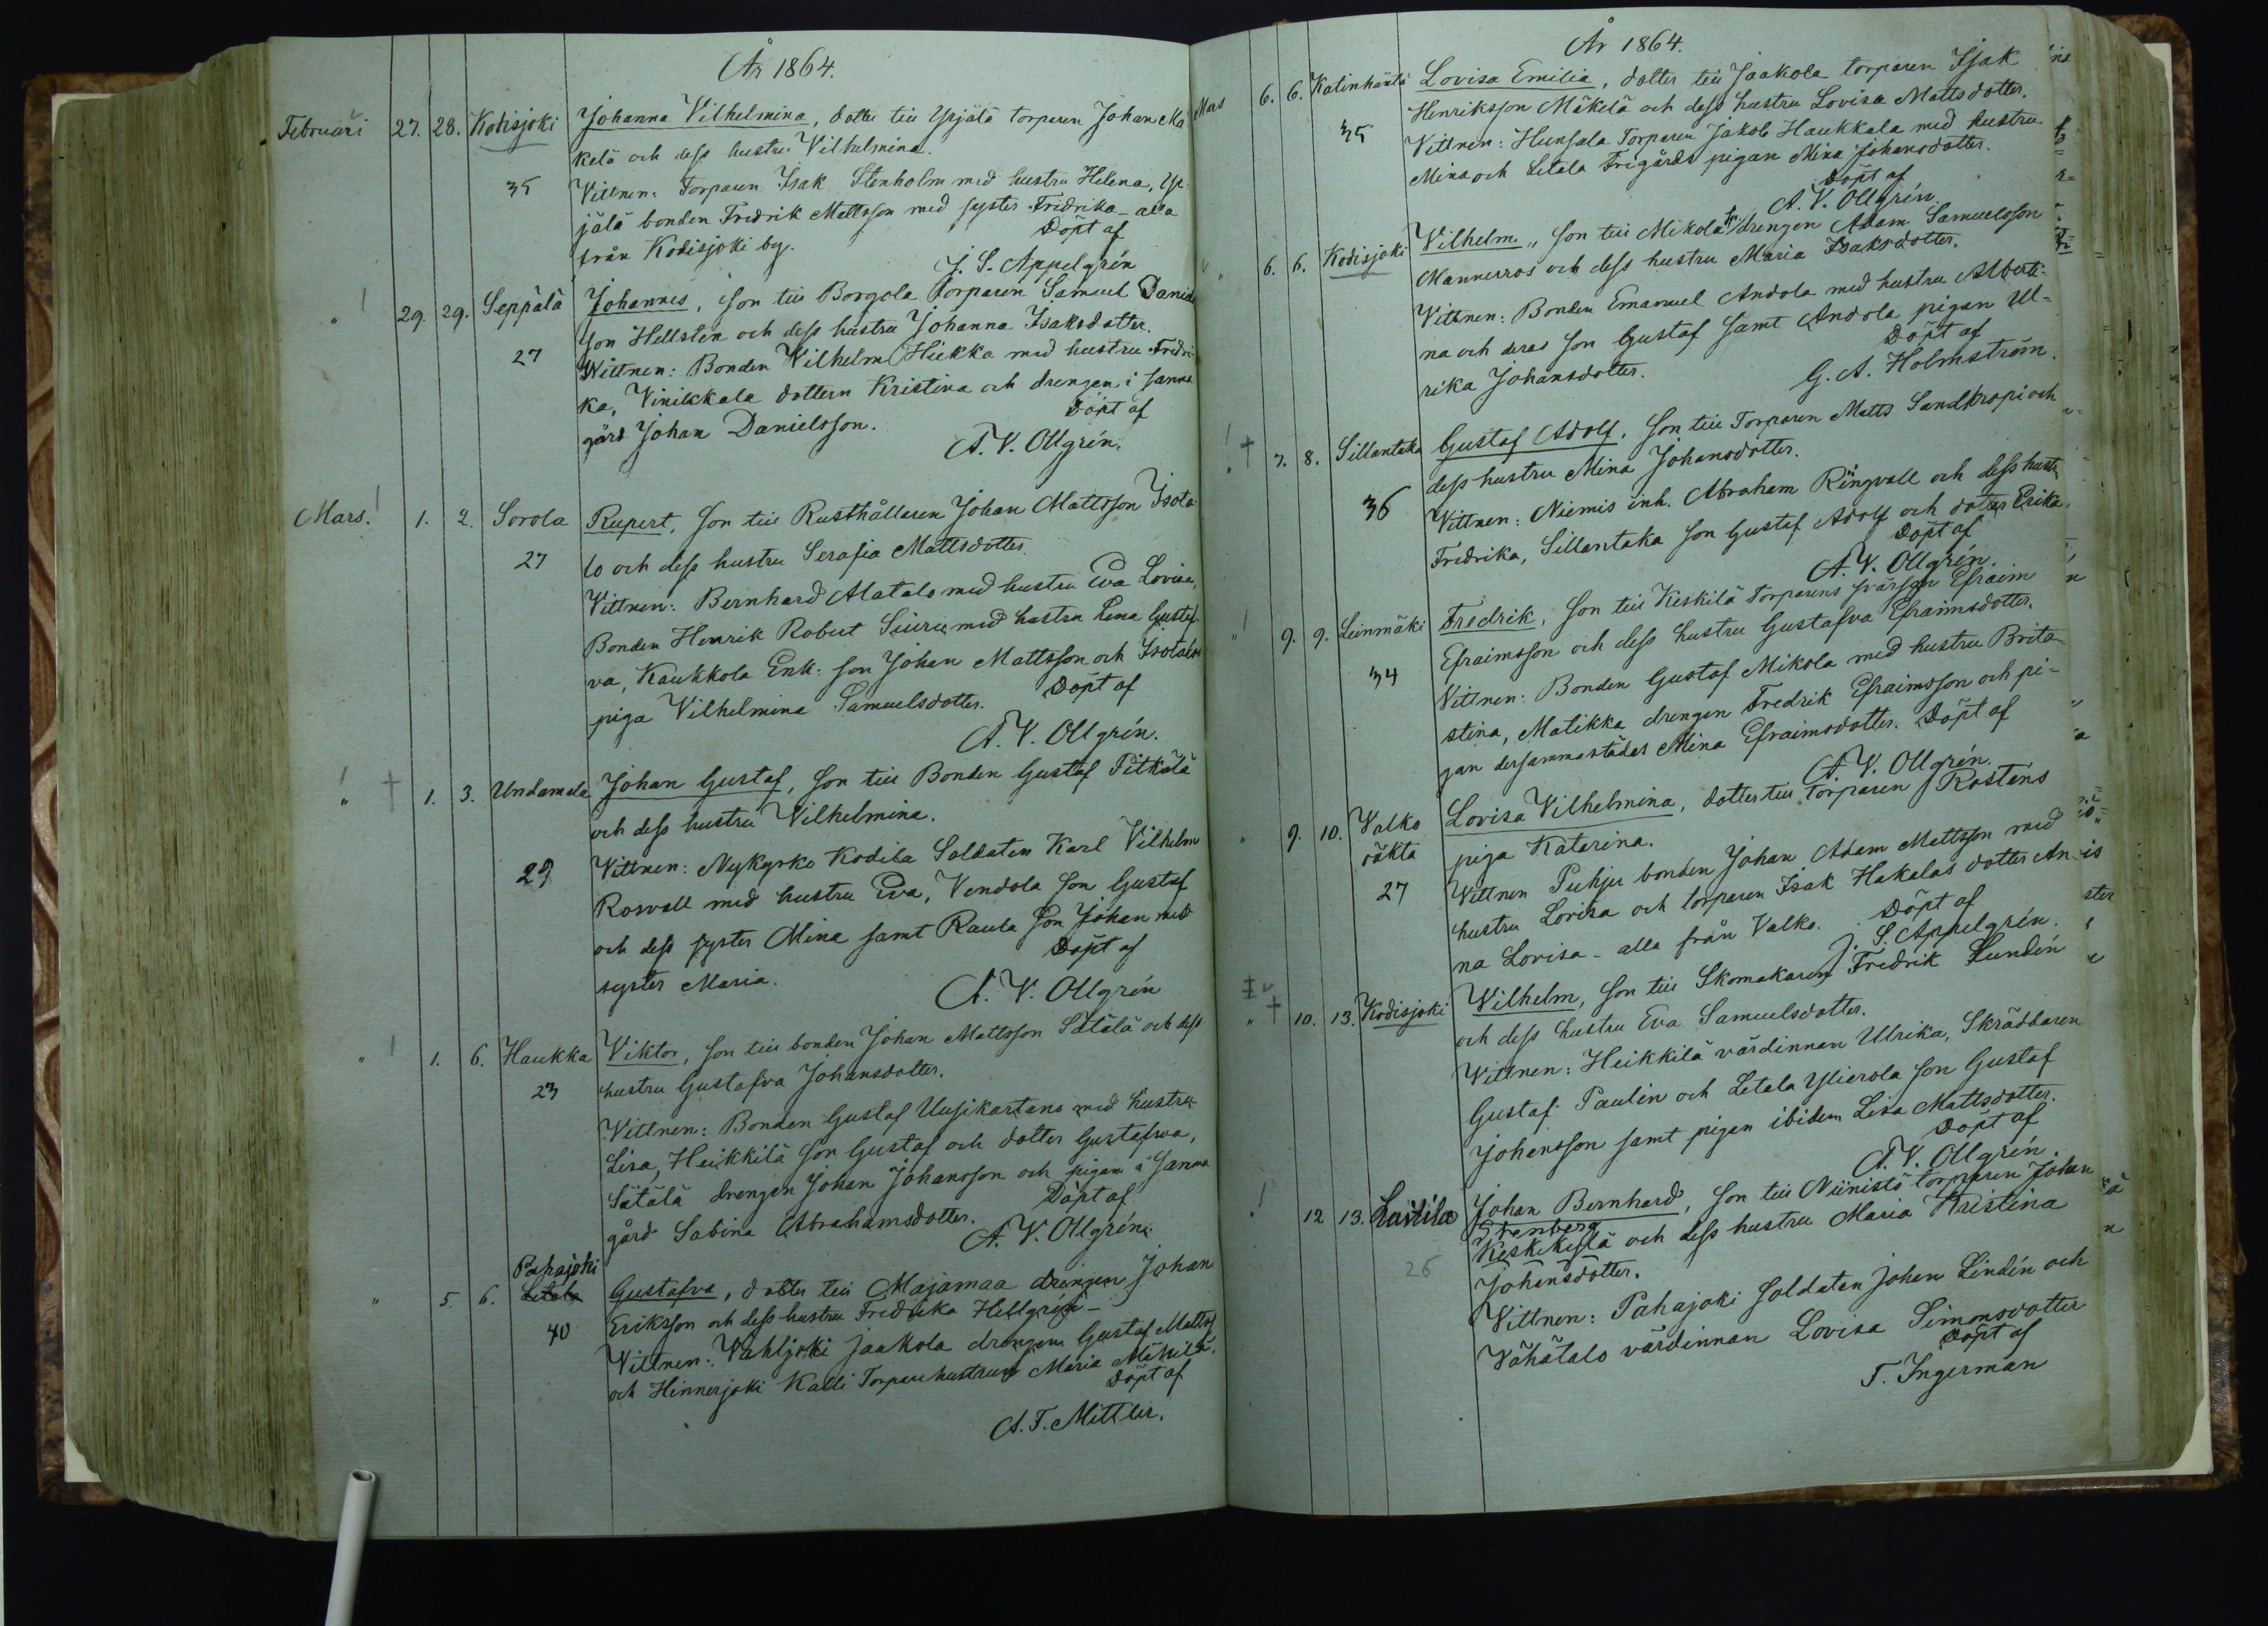 År 1864.
Februari 27. 28. Kodisjoki Johanna Vilhelmina, dotter till Yrjälä torparen Johan Mä
kelä och dess hustru Vilhelmina.
35 Vittnen: Torparen Isak Stenholm med hustru Helena, Yr
jälä bonden Fredrik Mattsson med syster Fredrika - alla
från Kodisjoki by. Döpt af
J. S. Appelgrén
" 29. 29. Seppälä Johannes, son till Borgola torparen Samuel Daniels
son Hellsten och dess hustru Johanna Isaksdotter.
27 Wittnen: Bonden Vilhelm Hiekka med hustru Fredri
ka, Vinikkala dottern Kristina och drengen i samma
gård Johan Danielsson. Döpt af
A. V. Ollgrén.
Mars. 1. 2. Sorola Rupert, son till Rusthållaren Johan Mattsson Isota
lo och dess hustru Serafia Mattsdotter.
27 Vittnen: Bernhard Alatalo med hustru Eva Lovisa,
Bonden Henrik Robert Siuru med hustru Lena Gustaf
va, Kaukkola Enk: son Johan Mattsson och Isotalo
piga Vilhelmina Samuelsdotter. Döpt af
A. V. Ollgrén.
" † 1. 3. Undamala Johan Gustaf, son till Bonden Gustaf Pitkälä
och dess hustru Vilhelmina.
29 Vittnen: Nykyrko Kodila Soldaten Karl Vilhelm
Rosvall med hustru Eva, Vendola son Gustaf
och dess syster Mina samt Raula son Johan med
syster Maria. Döpt af
A. V. Ollgrén
" 1. 6. Haukka Viktor, son till bonden Johan Mattsson Sätälä och dess
23 hustru Gustafva Johansdotter.
Vittnen: Bonden Gustaf Uusikartano med hustru
Lisa, Heikkilä son Gustaf och dotter Gustafwa,
Sätälä drengen Johan Johansson och pigan i samma
gård Sabina Abrahamsdotter. Döpt af
A. V. Ollgrén
Pahajoki
" 5. 6. Letala Gustafva, dotter till Majamaa drengen Johan
40 Eriksson och dess hustru Fredrika Hellgrén -
Vittnen: Vahljoki Jaakola drengen Gustaf Mattss
och Hinnerjoki Kalli Torparehustrun Maria Mäkilä.
Döpt af
A. F. Mittler.
År 1864.
Mars 6. 6. Katinhäntä Lovisa Emilia, dotter till Jaakola torparen Isak
Henriksson Mäkelä och dess hustru Lovisa Mattsdotter.
35 Vittnen: Hunsala Torparen Jakob Haukkala med hustru
Mina och Letala Frigårds pigan Mina Johansdotter.
Döpt af
A. V. Ollgrén.
" 6. 6. Kodisjoki Vilhelm, son till Mikola drengen Adam Samuelsson
Mannerros och dess hustru Maria Isaksdotter.
Vittnen: Bonden Emanuel Andola med hustru Alberti-
na och deras son Gustaf samt Andola pigan Ul-
rika Johansdotter. Döpt af
G. A. Holmström.
" † 7. 8. Sillantaka Gustaf Adolf, son till Torparen Matts Sandkropi och
dess hustru Mina Johansdotter.
36 Vittnen: Niemis inh. Abraham Ringvall och dess hustru
Fredrika, Sillantaka son Gustaf Adolf och dotter Erika.
Döpt af
A. V. Ollgrén.
" 9. 9. Leinmäki Fredrik, son till Keskilä torparens svärson Efraim
Efraimsson och dess hustru Gustafva Efraimsdotter.
34 Vittnen: Bonden Gustaf Mikola med hustru Brita
stina, Matikka drengen Fredrik Efraimsson och pi-
gan dersammastädes Mina Efraimsdotter. Döpt af
A. V. Ollgrén.
" 9. 10. Valko Lovisa Vilhelmina, dotter till torparen Rosténs
oäkta piga Katarina.
27 Vittnen Puhju bonden Johan Adam Mattsson med
hustru Lovisa och torparen Isak Hakalas dotter An
na Lovisa - alla från Valko. Döpt af
J. S. Appelgrén.
" † 10. 13. Kodisjoki Vilhelm, son till Skomakaren Fredrik Lundén
och dess hustru Eva Samuelsdotter.
Vittnen: Heikkilä värdinnan Ulrika, Skräddaren
Gustaf Paulin och Letala Ylierola son Gustaf
Johansson samt pigan ibidem Lisa Mattsdotter.
Döpt af
A. V. Ollgrén.
12 13. Laitila Johan Bernhard, son till Niinistö torparen Johan
Stenberg
Keskikylä och dess hustru Maria Kristina
26 Johansdotter.
Vittnen: Pahajoki soldaten Johan Lindén och
Vähätalo värdinnan Lovisa Simonsdotter
Döpt af
F. Ingerman